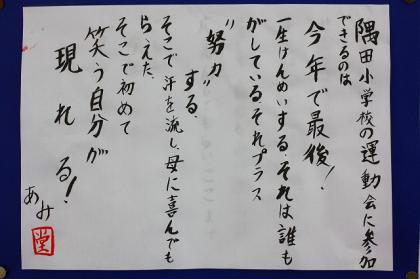 隅田小学校の運動会に参加
できるのは
今年で最後！
一生けんめいする。それは誰も
がしている。それプラス
“努力”
する。
そこで汗を流し、母に喜んでも
らえた。
そこで初めて
笑う自分が
現れる！
あみ
堂